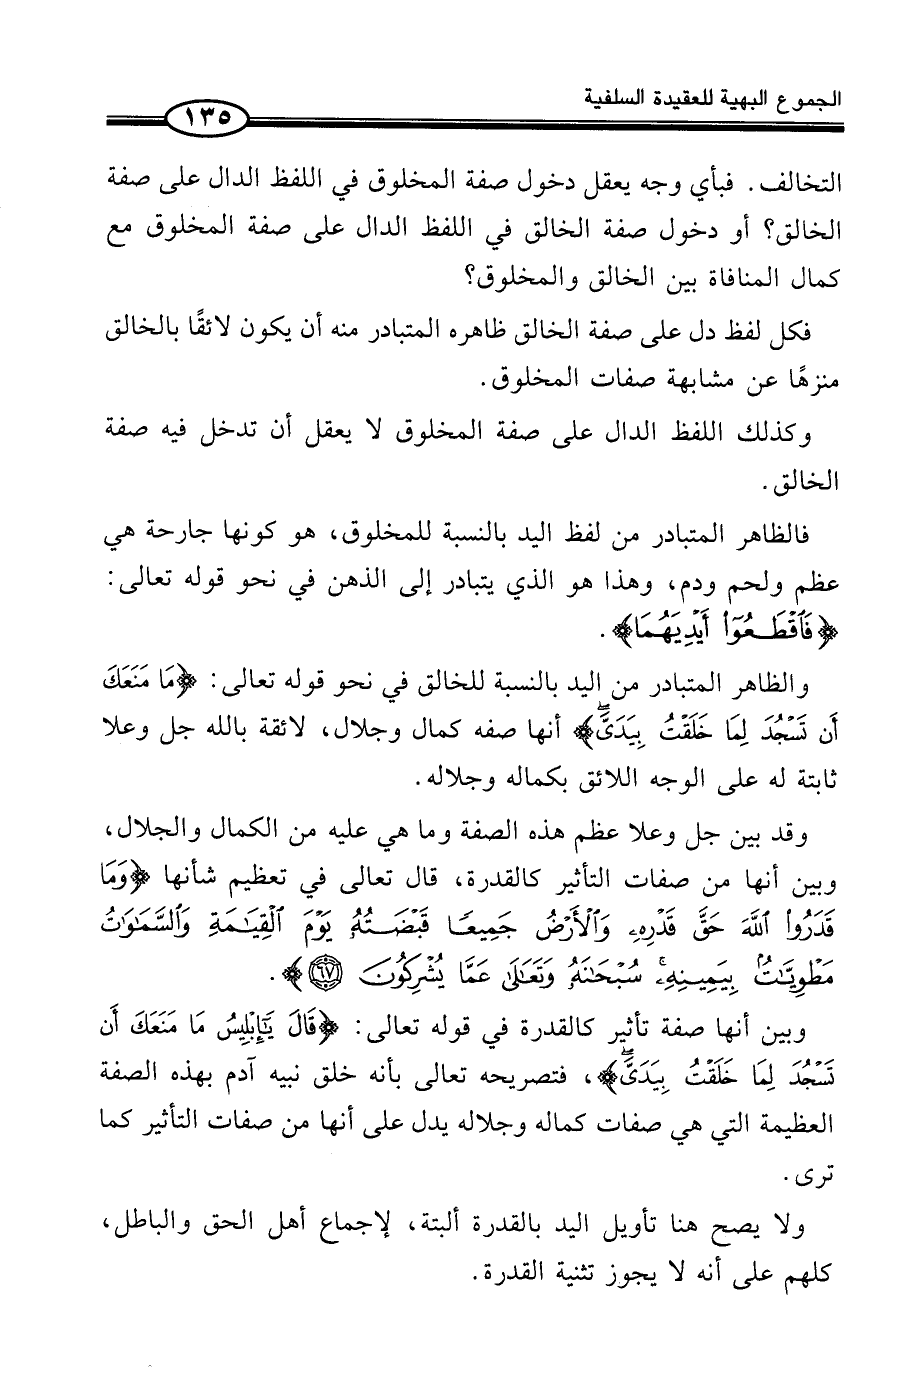 الجموع البهية للعقيدة السلفية
١٣٥
التخالف. فبأي وجه يعقل دخول صفة المخلوق في اللفظ الدال على صفة
الخالق؟ أو دخول صفة الخالق في اللفظ الدال على صفة المخلوق مع
كمال المنافاة بين الخالق والمخلوق؟
فكل لفظ دل على صفة الخالق ظاهره المتبادر منه أن يكون لائقًا بالخالق
منزهًا عن مشابهة صفات المخلوق.
وكذلك اللفظ الدال على صفة المخلوق لا يعقل أن تدخل فيه صفة
الخالق.
فالظاهر المتبادر من لفظ اليد بالنسبة للمخلوق، هو كونها جارحة هي
عظم ولحم ودم، وهذا هو الذي يتبادر إلى الذهن في نحو قوله تعالى:
﴿فَٱقۡطَعُوٓاْ أَيۡدِيَهُمَا﴾.
والظاهر المتبادر من اليد بالنسبة للخالق في نحو قوله تعالى: ﴿مَا مَنَعَكَ
أَن تَسۡجُدَ لِمَا خَلَقۡتُ بِيَدَيَّۖ﴾ أنها صفه كمال وجلال، لائقة بالله جل وعلا
ثابتة له على الوجه اللائق بكماله وجلاله.
وقد بين جل وعلا عظم هذه الصفة وما هي عليه من الكمال والجلال،
وبين أنها من صفات التأثير كالقدرة، قال تعالى في تعظيم شأنها ﴿وَمَا
قَدَرُواْ ٱللَّهَ حَقَّ قَدۡرِهِۦ وَٱلۡأَرۡضُ جَمِيعٗا قَبۡضَتُهُۥ يَوۡمَ ٱلۡقِيَٰمَةِ وَٱلسَّمَٰوَٰتُ
مَطۡوِيَّٰتُۢ بِيَمِينِهِۦۚ سُبۡحَٰنَهُۥ وَتَعَٰلَىٰ عَمَّا يُشۡرِكُونَ ٦٧﴾.
وبين أنها صفة تأثير كالقدرة في قوله تعالى: ﴿قَالَ يَٰٓإِبۡلِيسُ مَا مَنَعَكَ أَن
تَسۡجُدَ لِمَا خَلَقۡتُ بِيَدَيَّۖ﴾، فتصريحه تعالى بأنه خلق نبيه آدم بهذه الصفة
العظيمة التي هي صفات كماله وجلاله يدل على أنها من صفات التأثير كما
ترى.
ولا يصح هنا تأويل اليد بالقدرة ألبتة، لإجماع أهل الحق والباطل،
كلهم على أنه لا يجوز تثنية القدرة.